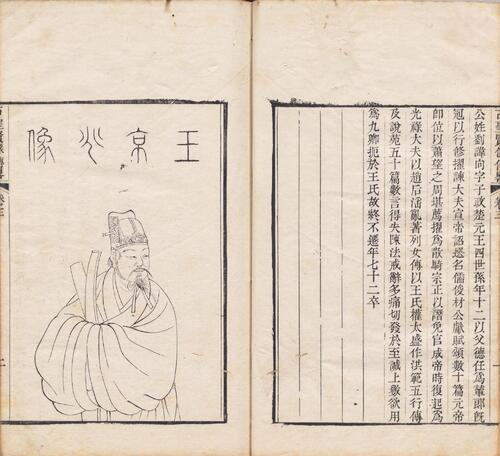 公姓劉諱向字子政楚元王四世孫年十二以父德任爲輦郎既
冠以行修擢諫大夫宣帝詔選名儒俊材公獻賦頌數十篇元帝
卽位以蕭望之周堪薦擢爲散騎宗正以譖免官成帝時復起爲
光祿大夫以趙后淫亂著列女傳以王氏權太盛作洪範五行傳
及說苑五十篇數言得失陳法戒辭多痛切發於至誠上數欲用
爲九卿扼於王氏故終不遷年七十二卒
王京兆像